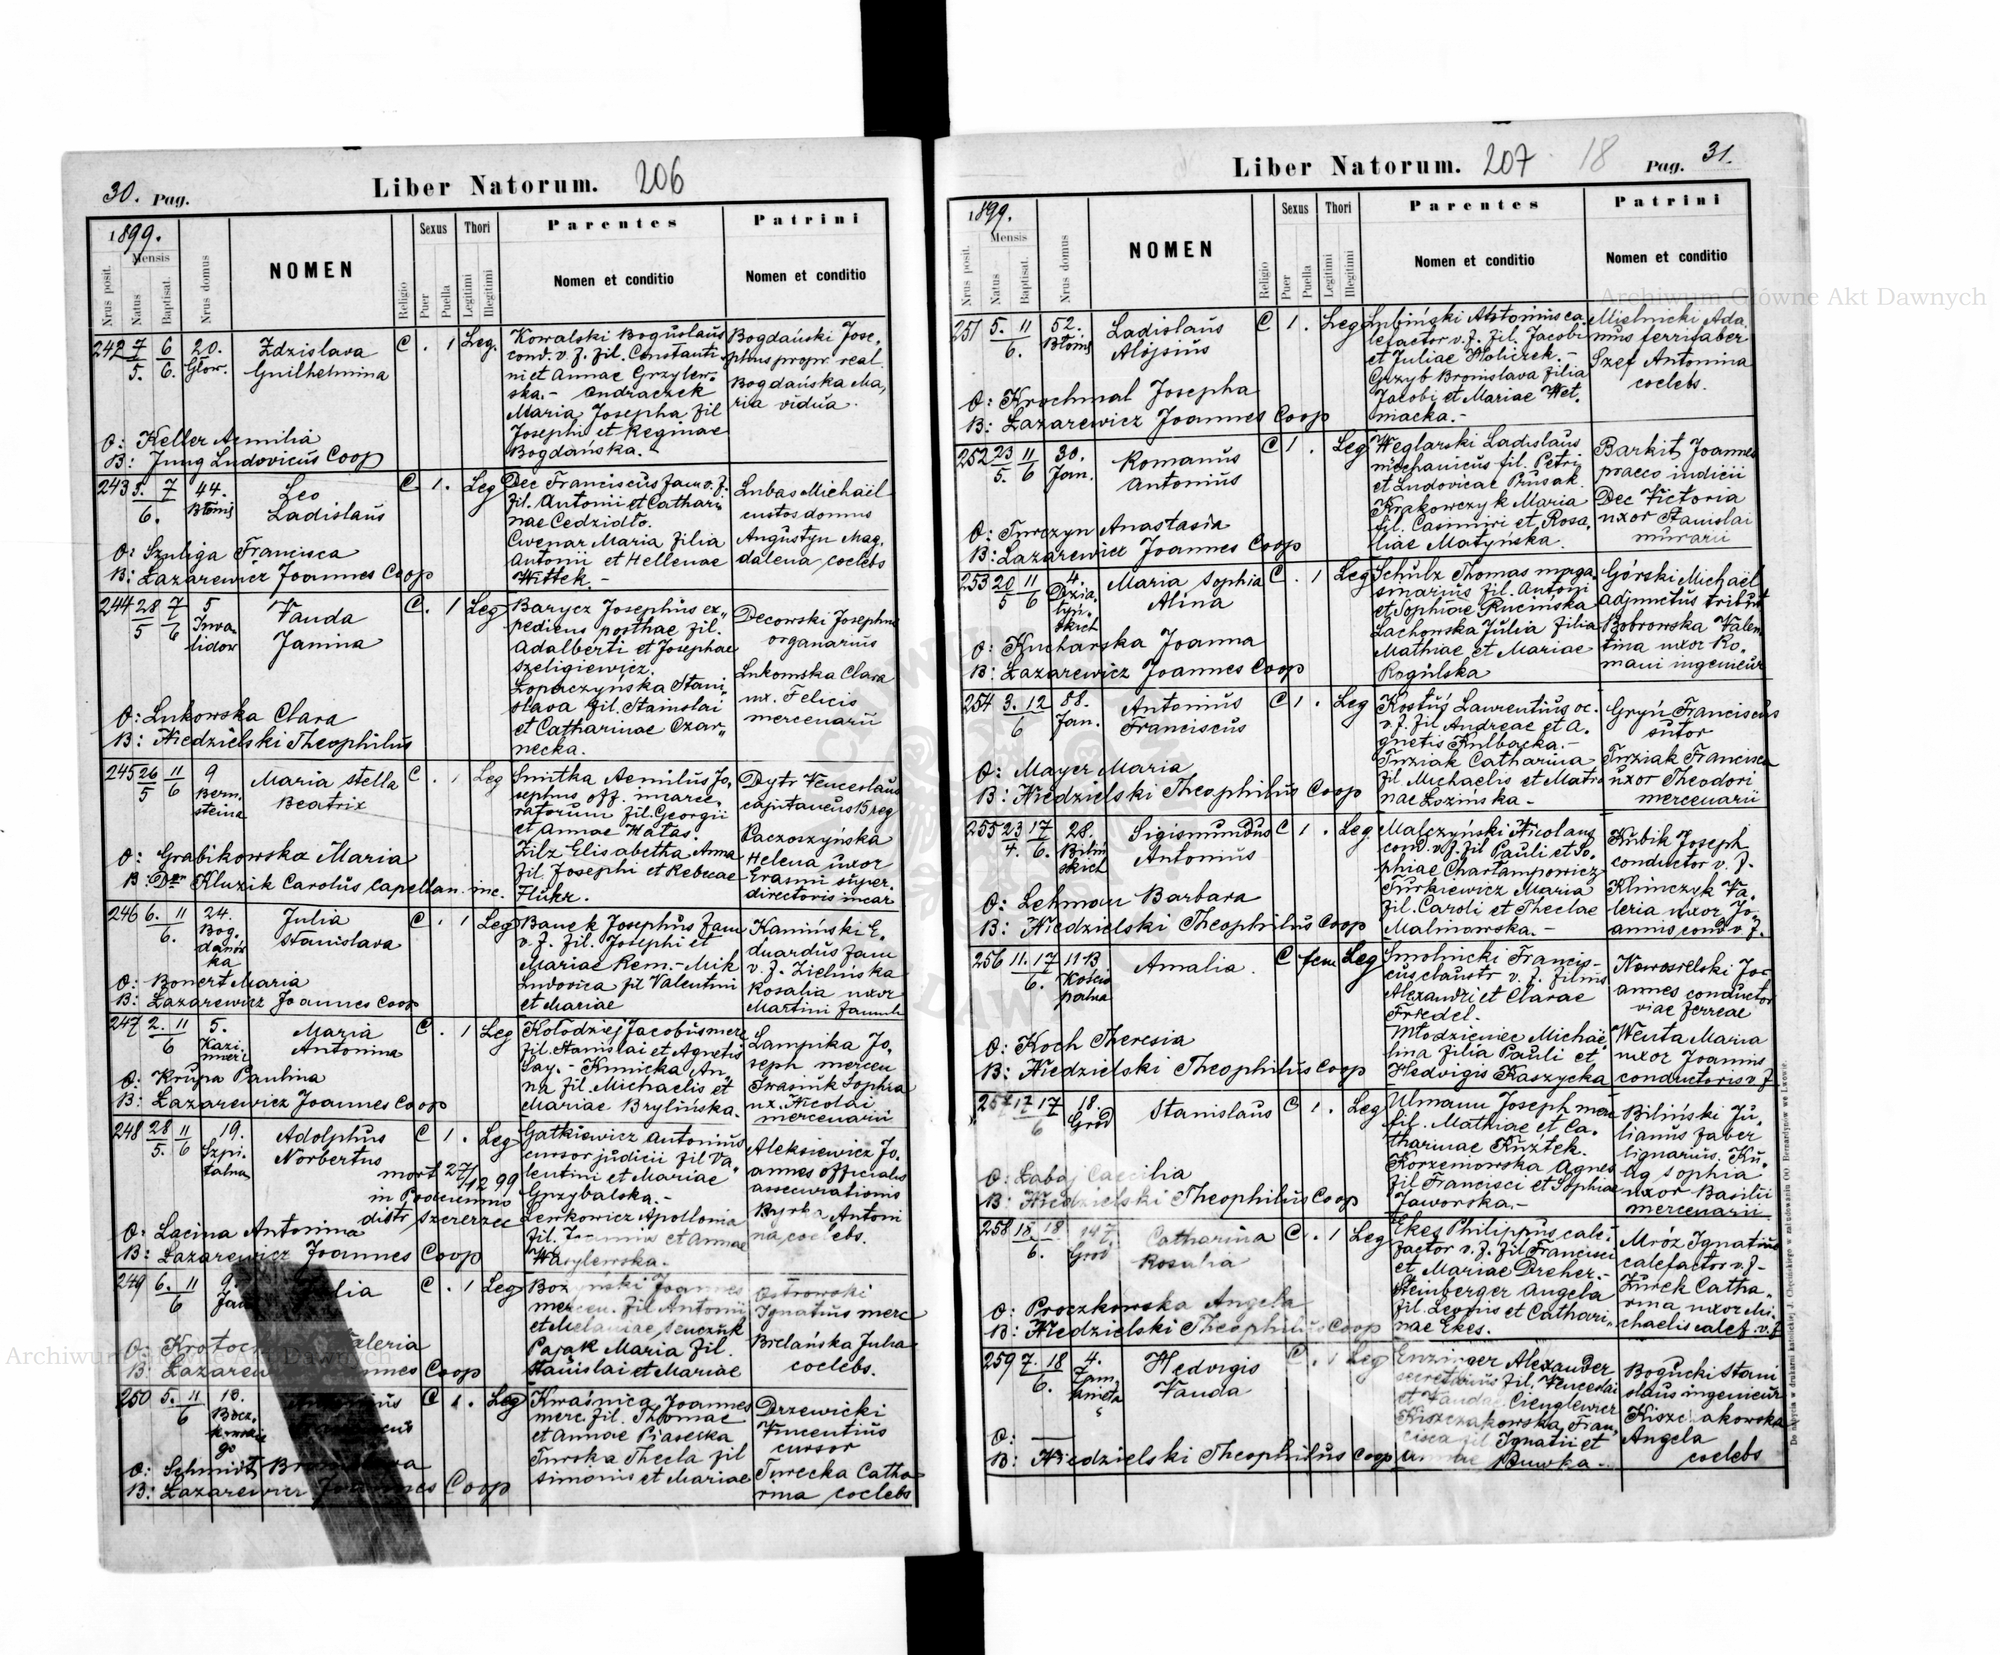 30. Pag.
Liber Natorum. 206
1899.
Nrus posit.
Mensis
Natus
Baptisat.
Nrus domus
NOMEN
Religio
Sexus
Puer
Puella
Thori
Legitimi
Illegitimi
Parentes
Nomen et conditio
Patrini
Nomen et conditio
242 7/5. 6/6. 20. Głow.
Zdzislava
Guilhelmina
C . 1 Leg.
Kowalski Boguslaus
cond. v. f. fil. Constanti
ni et Annae Grzylew-
ska.- Ondraczek
Maria Josepha fil
Josephi et Reginae
Bogdańska.
Bogdański Jose,
phus propr. real.
Bogdańska Ma,
ria vidua.
O: Keller Aemilia
B: Jung Ludovicus Coop
243 5. 7 6. 44. Błonie
Leo
Ladislaus
C 1. Leg
Dec Franciscus fam v. f.
fil. Antonii et Cathari-
nae Cedzidło.
Cwenar Maria filia
Antonii et Hellenae
Wittek.-
Lubas Michaël
custos domus
Augustyn Mag,
dalena coelebs
O: Szuliga Francisca
B: Łazarewicz Joannes Coop
244 28/5 7/6 5 Inwa-
lidow
Vanda
Janina
C . 1 Leg
Barycz Josephus ex,,
pediens posthae fil.
Adalberti et Josephae
Szeligiewicz.
Łoparczyńska Stani-
slava fil. Stanislai
et Catharinae Czar,,
necka.
Decowski Josephus
organarius
Lukomska Clara
ux. Felicis
mercenarii
O: Lukowska Clara
B: Niedzielski Theophilus
245 26/5 11/6 9
Bern-
steina
Maria Stella
Beatrix
C . 1 Leg
Smitka Aemilus Jo,
sephus off.
fil. Georgii
et Annae Hatas.
Zilz Elisabetha Anna
fil. Josephi et Rebecae
Fluhr.
Dytr Venceslaus
capitaneus 15 reg
Paczoszyńska
Helena uxor
Erasmi super.
directoris
O: Grabikowska Maria
B: Kluzik Carolus capellan.
246 6. 11 6. 24.
Bog-
danów
ka
Julia
Stanislava
C . 1 Leg
Banek Josephus fam
v. f. fil. Josephi et
Mariae Rem.- Mik
Ludovica fil Valentini
et Mariae
Kamiński E.
duardus fam
v. f. Zielińska
Rosalia uxor
Martini famuli
O: Bonert Maria
B: Łazarewicz Joannes Coop
247 2. 11 6 5.
Kazi-
mierz
Maria
Antonina
C . 1 Leg
Kołodziej Jacobus merc
fil. Stanislai et Agnetis
Say.- Kinicka An-
na fil. Michaelis et
Mariae Brylińska.
Lampika Jo,
seph mercen
Iwasiuk Sophia
ux. Nicolai
mercenarii
O: Krupa Paulina
B: Łazarewicz Joannes Coop
248 28/5. 11/6 19.
Szpi-
talna
Adolphus
Norbertus
C 1. Leg
mort 27/12 99
in Prod
distr Szczerzec
Gatkiewicz Antonius
cursor judicii fil Va-
lentini et Mariae
Grzybalska.-
Lewkowicz Apollonia
fil. et Annae
Wasylewska.-
Aleksiewicz Jo,
annes officialis
assecurationis
Byrka Antoni
na, coelebs.
O: Lacina Antonina
B: Łazarewicz Joannes Coop
249 6. 11 6
C . 1 Leg
Joannes
mercen. fil Antonii
et Melaniae
Pająk Maria fil.
Stanislai et Mariae
Ostrowski
Ignatius merc
Bielańska Julia
coelebs.
O: Valeria
B: Joannes Coop
250 5. 11 6 10.
C 1. Leg
Kwaśnica Joannes
merc. fil. Thomae
et Annae Piasecka
Turska Thecla fil
Simonis et Mariae
Drzewicki
Vincentius
cursor
Turecka Catha
rina coelebs
O: Schmidt Bronislava
B: Łazarewicz Joannes Coop
Liber Natorum. 207 18 Pag. 31.
1899.
Nrus posit.
Mensis
Natus
Baptisat.
Nrus domus
NOMEN
Religio
Sexus
Puer
Puella
Thori
Legitimi
Illegitimi
Parentes
Nomen et conditio
Patrini
Nomen et conditio
251 5. 11 6. 52.
Błonie
Ladislaus
Alojsius
C 1. Leg
Lubiński Antonius ca
lefactor v. f. fil. Jacobi
et Juliae Holiczek.-
Grzyb Bronislava filia
Jacobi et Mariae Wet,
niacka.-
Mielnicki Ada
mus ferrifaber
Szef Antonina
coelebs.
O: Krochmal Josepha
B: Łazarewicz Joannes Coop
252 23/5. 11/6 30.
Jan.
Romanus
Antonius
C 1. Leg
Węglarski Ladislaus
mechanicus fil. Petri
et Ludovicae Prusak.
Krakowczyk Maria
fil. Casimiri et Rosa,
liae Matyńska.
Barkit Joannes
praeco indicii
Dec Victoria
uxor Stanislai
murarii
O: Turczyn Anastasia
B: Łazarewicz Joannes Coop
253 20/5 11/6 4.
Dzia-
łyń-
skich
Maria Sophia
Alina
C . 1 Leg
Schulz Thomas maga-
sinarius fil. Antoni
et Sophiae Rucińska
Lachowska Julia filia
Mathiae et Mariae
Rogulska
Górski Michaël
adjunctus tribut
Bobrowska Valen
tina uxor Ro-
mani ingenieur
O: Kucharska Joanna
B: Łazarewicz Joannes Coop
254 3. 12 6 88.
Jan.
Antonius
Franciscus
C 1. Leg
Kostuś Laurentius oc.
v. f. fil Andreae et A-
gnetis Kulbacka.-
Tuziak Catharina
fil Michaelis et Matro
nae Łozińska.-
Gryń Franciscus
sutor
Tuziak Francisca
uxor Theodori
mercenarii
O: Mayer Maria
B: Niedzielski Theophilus Coop
255 23/4. 17/6. 28.
Biliń
skich
Sigismundus
Antonius
C 1. Leg.
Malczyński Nicolaus
cond. v. f. fil Pauli et So-
phiae Chartampowicz
Turkiewicz Maria
fil. Caroli et Theclae
Malinowska.-
Kubik Joseph
conductor v. f.
Klimczyk Va-
leria uxor Jo-
annis cond v. f.
O: Lehman Barbara
B: Niedzielski Theophilus Coop
256 11. 17 6. 11 B
Kościo
palna
Amalia.
C fem Leg
Smolnicki Francis-
cus claustr v. f. filius
Alexandri et Clarae
Friedel.
Młodzieniec Michaë-
lina filia Pauli et
Hedvigis Kaszycka
Nowosielski Jo-
annes conductor
viae ferreae
Wenta Maria
uxor Joannis
conductoris v. f
O: Koch Theresia
B: Niedzielski Theophilus Coop
257 17 17 6 18.
Gród
Stanislaus
C 1. Leg
Ulmann Joseph merc
fil. Mathiae et Ca-
tharinae Kuztek.
Korzemowska Agnes
fil Francisci et Sophiae
Jaworska.-
Biliński Ju-
lianus faber
lignarius. Ku-
ta Sophia
uxor Basilii
mercenarii
O: Łabaj Caecilia
B: Niedzielski Theophilus Coop
258 15 18 6. 147
Gród
Catharina
Rosalia
C . 1 Leg
Ekes Philippus cale-
factor v. f. fil Francisci
et Mariae Dreher.-
Steinberger Angela
fil. Leonis et Cathari-
nae Ekes.
Mróz Ignatius
calefactor v. f-
Żurek Catha-
rina uxor Mi-
chaelis calef v. f
O: Proczkowska Angela
B: Niedzielski Theophilus Coop
259 7. 18 6. 4.
Hedvigis
Vanda
C . 1 Leg
Enzinger Alexander
secretarius fil. Venceslai
et Vandae Cienglewicz
Kiszczakowska Fran,
cisca fil Ignatii et
Annae Buwka.-
Bogucki Stani
slaus ingenieur
Kiszczakowska
Angela
coelebs
O: —
B: Niedzielski Theophilus Coop
Do nabycia w drukarni katolickiej J. Chęcińskiego w zabudowaniu OO. Bernardynów we Lwowie.
Archiwum Główne Akt Dawnych
Archiwum Główne Akt Dawnych